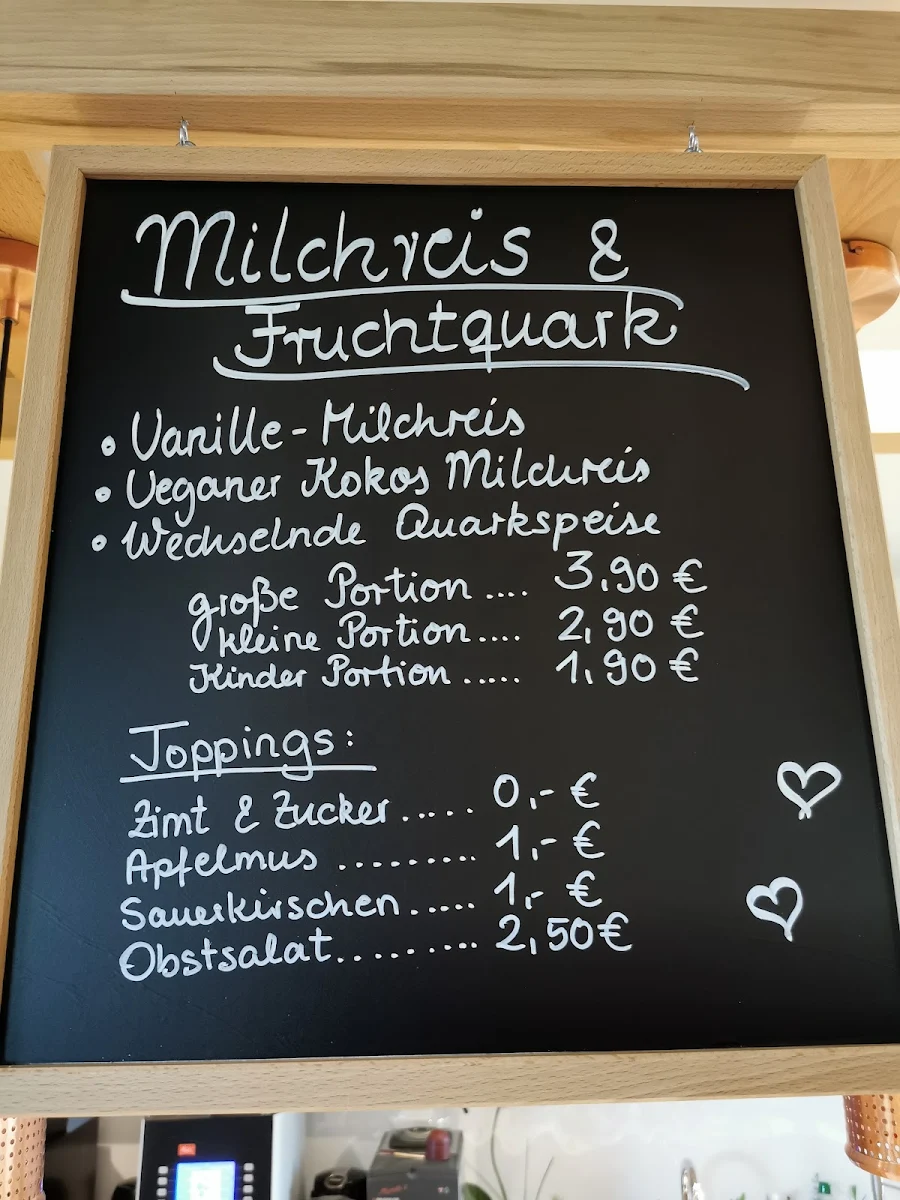 Milchreis &
Fruchtquark
• Vanille-Milchreis
• Veganer Kokos Milchreis
• Wechselnde Quarkspeise
große Portion .... 3,90 €
kleine Portion.... 2,90 €
Kinder Portion ..... 1,90 €
Toppings:
Zimt & Zucker ..... 0,- €
Apfelmus ......... 1,- €
Sauerkirschen..... 1,- €
Obstsalat......... 2,50€